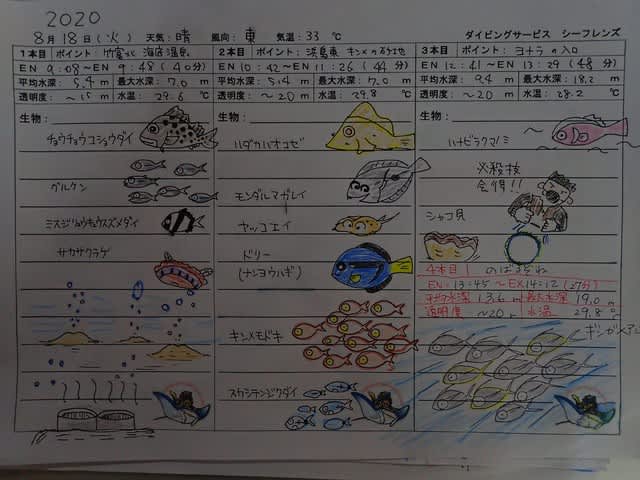 2020
8月18日(火) 天気:晴 風向:東 気温:33 ℃ ダイビングサービス シーフレンズ
1本目 ポイント:竹富北 海底温泉
EN 9:08~EN 9:48 (40分)
平均水深: 5.4 m 最大水深: 7.0 m
透明度: ~15 m 水温: 29.6 ℃
生物:
チョウチョウコショウダイ
グルクン
ミスジリュウキュウスズメダイ
サカサクラゲ
2本目 ポイント:浜島東 キンメの根
EN 10:42~EN 11:26 (44分)
平均水深: 5.4 m 最大水深: 7.0 m
透明度: ~20 m 水温: 29.8 ℃
生物:
ハダカハオコゼ
モンダルマガレイ
ヤッコエイ
ドリー
(ナンヨウハギ)
キンメモドキ
スカシテンジクダイ
3本目 ポイント: ヨナラの入口
EN 12:41~EN 13:29 (48分)
平均水深: 9.4 m 最大水深: 18.2 m
透明度: ~20 m 水温: 28.2 ℃
生物:
ハナビラクマノミ
必殺技
会得!!
シャコ貝
4本目! のばまぞね
EN:13:45~EX14:12 (27分)
平均水深 13.6 m 最大水深 19.0 m
透明度 ~20m 水温 29.8℃
ギンガメアジ